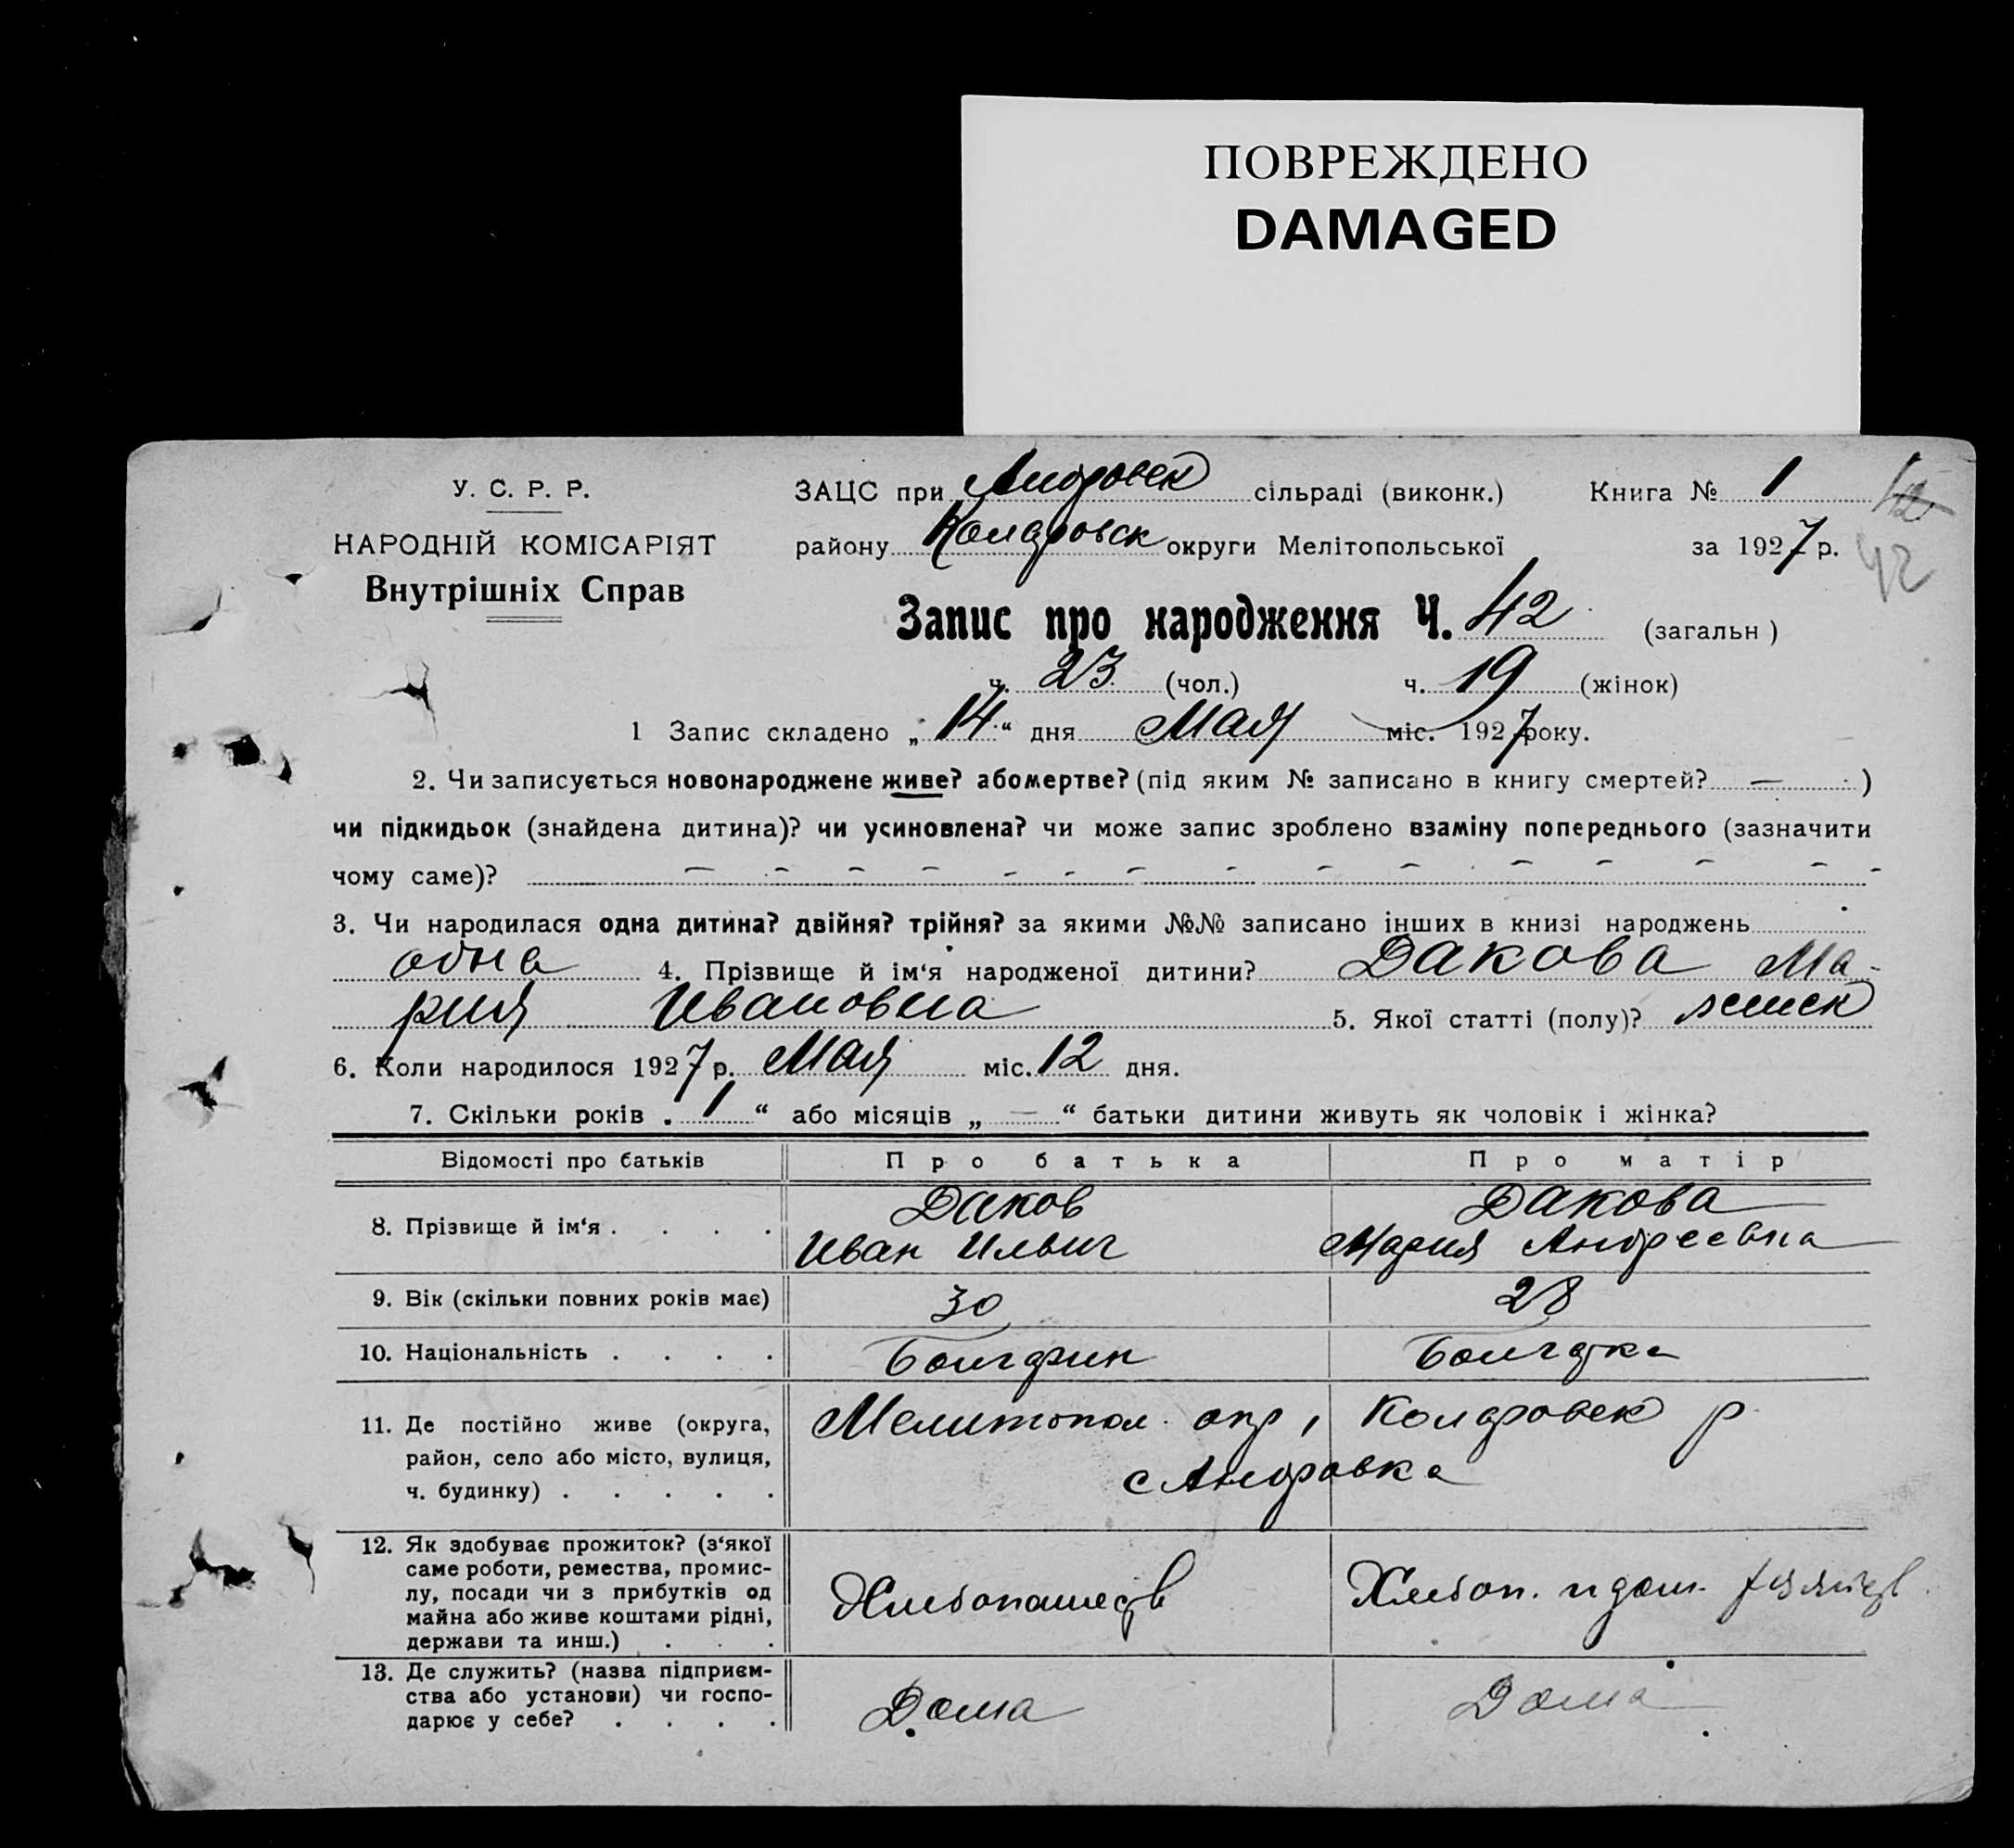 ПОВРЕЖДЕНО
DAMAGED
У. С. Р. Р.
НАРОДНІЙ КОМІСАРІЯТ
Внутрішніх Справ
ЗАЦС при Андровск сільраді (виконк.) Книга № 1 12
району Коларовск округи Мелітопольської за 1927 р. 42
Запис про народження Ч. 42 (загальн)
ч. 23 (чол.) ч. 19 (жінок)
1 Запис складено „14“ дня Мая міс. 1927 року.
2. Чи записується новонароджене живе? або мертве? (під яким № записано в книгу смертей? — )
чи підкидьок (знайдена дитина)? чи усиновлена? чи може запис зроблено взаміну попереднього (зазначити
чому саме)? — — — — — — — — — — — — — —
3. Чи народилася одна дитина? двійня? трійня? за якими №№ записано інших в книзі народжень
одна 4. Прізвище й ім‘я народженої дитини? Дакова Ма-
рия Ивановна 5. Якої статті (полу)? женск
6. Коли народилося 1927 р. Мая міс. 12 дня.
7. Скільки років „ 1 “ або місяців „ — “ батьки дитини живуть як чоловік і жінка?
Відомості про батьків Про батька Про матір
8. Прізвище й ім‘я . . . . Даков Иван Ильич Дакова Мария Андреевна
9. Вік (скільки повних років має) 30 28
10. Національність . . . . Болгарин Болгарка
11. Де постійно живе (округа, Мелитопол. окр, Коларовск р
район, село або місто, вулиця, с Андровка
ч. будинку) . . . . .
12. Як здобуває прожиток? (з‘якої
саме роботи, ремества, промис-
лу, посади чи з прибутків од Хлебопашеств Хлебоп. и дом.
майна або живе коштами рідні,
держави та инш.) . . .
13. Де служить? (назва підприєм-
ства або установи) чи госпо- Дома Дома
дарює у себе? . . . .